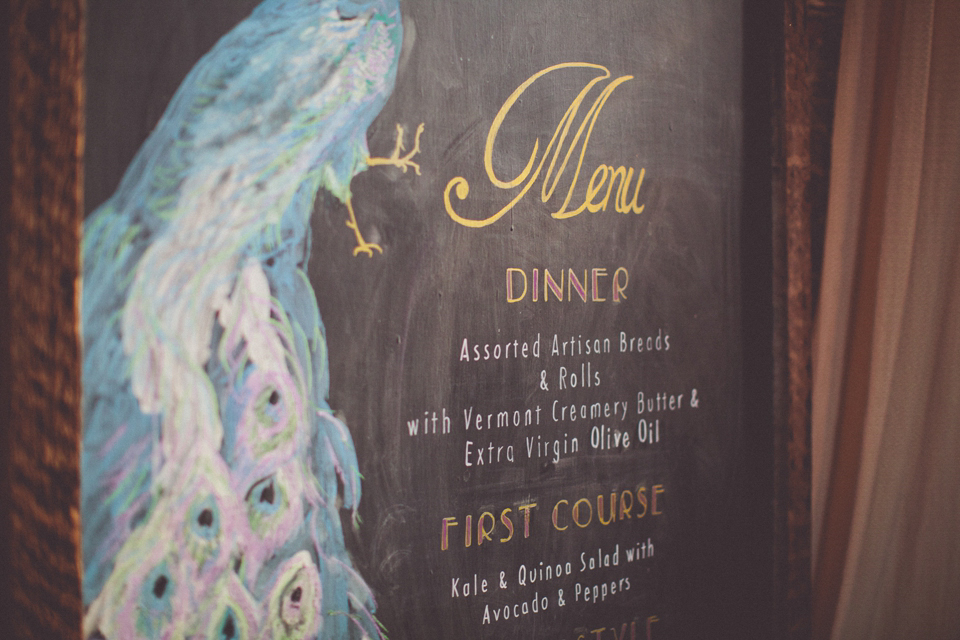 Menu
DINNER
Assorted Artisan Breads
& Rolls
with Vermont Creamery Butter &
Extra Virgin Olive Oil
FIRST COURSE
Kale & Quinoa Salad with
Avocado & Peppers
STYLE